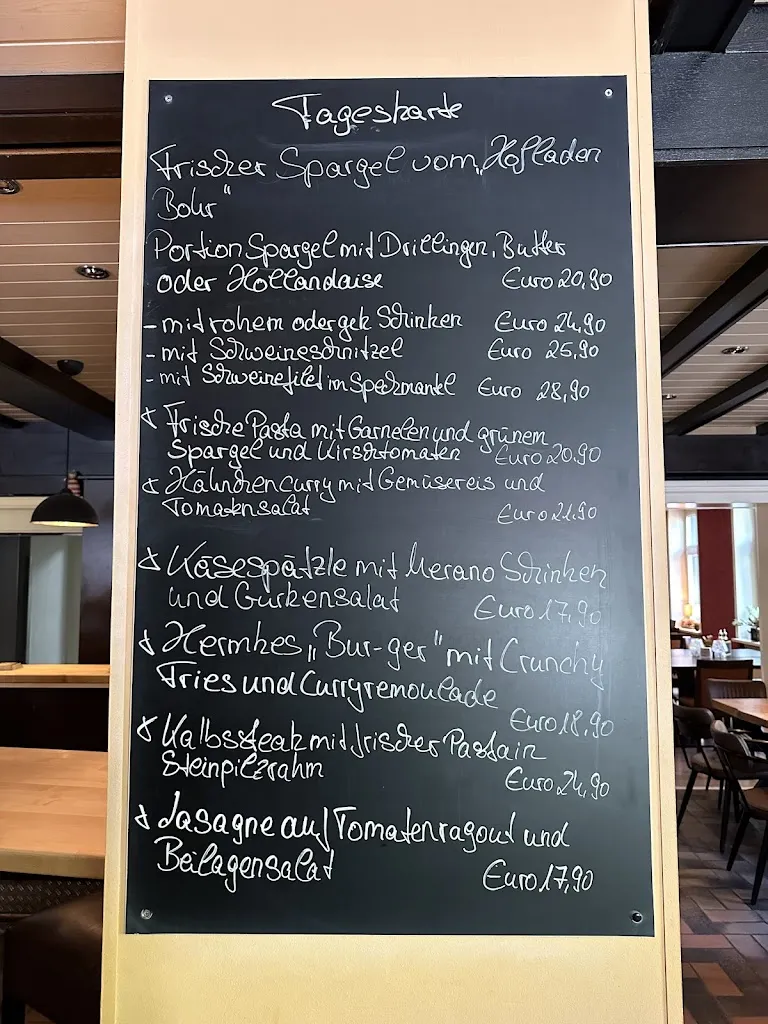 Tageskarte
Frischer Spargel vom „Hofladen
Bohr"
Portion Spargel mit Drillingen, Butter
oder Hollandaise Euro 20,90
- mit rohem oder gek Schinken Euro 24,90
- mit Schweineschnitzel Euro 25,90
- mit Schweinefilet im Speckmantel Euro 28,90
* Frische Pasta mit Garnelen und grünem
Spargel und Kirschtomaten Euro 20,90
* Hähnchencurry mit Gemüsereis und
Tomatensalat Euro 21,90
* Käsespätzle mit Merano Schinken
und Gurkensalat Euro 17,90
* Hermkes „Bur-ger" mit Crunchy
Fries und Curryremoulade
Euro 18,90
* Kalbssteak mit frischer Pasta in
Steinpilzrahm Euro 24,90
* Lasagne auf Tomatenragout und
Beilagensalat Euro 17,90